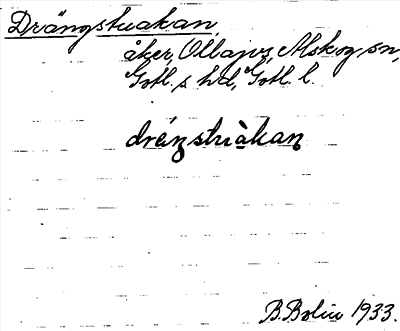 Drängstuakan,
åker, Ollajvs, Alskog sn,
Gotl. s hd, Gotl. l.
drę́ŋstu̇̀akan
B. Bolin 1933.